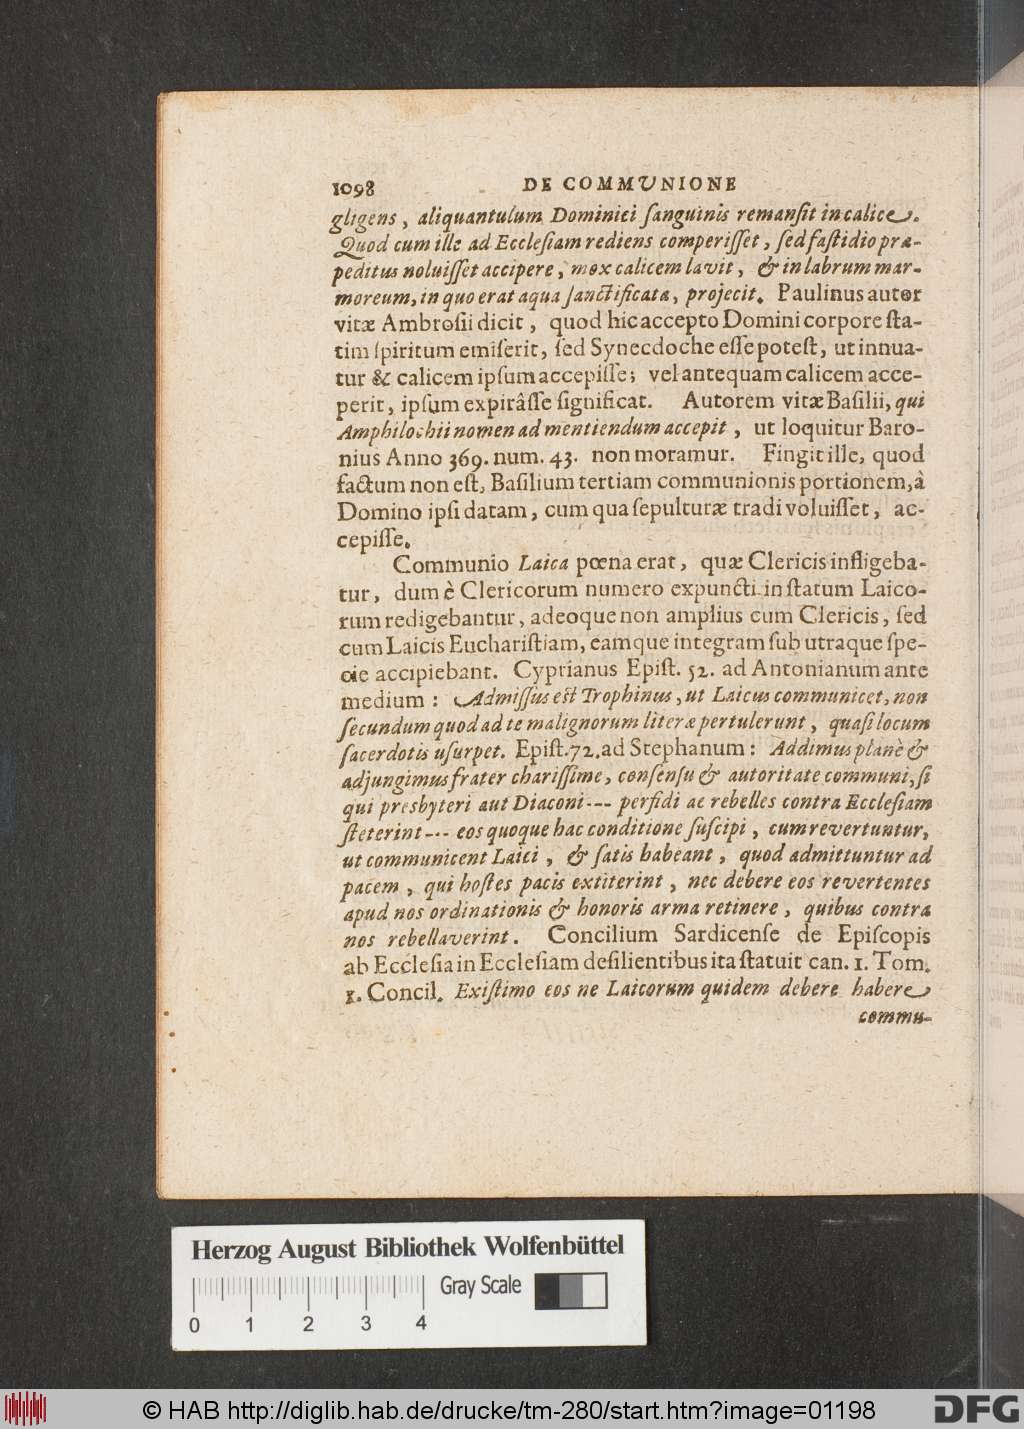 1098 DE COMMVNIONE
gligens, aliquantulum Dominici ſanguinis remanſit in calice.
Quod cum ille ad Eccleſiam rediens comperiſſet, ſed faſtidio præ-
peditus noluiſſet accipere, mox calicem lavit, & in labrum mar-
moreum, in quo erat aqua ſanctificata, projecit. Paulinus autor
vitæ Ambroſii dicit, quod hic accepto Domini corpore ſta-
tim ſpiritum emiſerit, ſed Synecdoche eſſe poteſt, ut innua-
tur & calicem ipſum accepiſſe; vel antequam calicem acce-
perit, ipſum expirâſſe ſignificat. Autorem vitæ Baſilii, qui
Amphilochii nomen ad mentiendum accepit, ut loquitur Baro-
nius Anno 369. num. 43. non moramur. Fingit ille, quod
factum non eſt, Baſilium tertiam communionis portionem, à
Domino ipſi datam, cum qua ſepulturæ tradi voluiſſet, ac-
cepiſſe.
Communio Laica pœna erat, quæ Clericis infligeba-
tur, dum è Clericorum numero expuncti in ſtatum Laico-
rum redigebantur, adeoque non amplius cum Clericis, ſed
cum Laicis Euchariſtiam, eamque integram ſub utraque ſpe-
cie accipiebant. Cyprianus Epiſt. 52. ad Antonianum ante
medium: Admiſſus eſt Trophinus, ut Laicus communicet, non
ſecundum quod ad te malignorum literæ pertulerunt, quaſi locum
ſacerdotis uſurpet. Epiſt. 72. ad Stephanum: Addimus planè &
adjungimus frater chariſſime, conſenſu & autoritate communi, ſi
qui presbyteri aut Diaconi --- perfidi ac rebelles contra Eccleſiam
ſteterint --- eos quoque hac conditione ſuſcipi, cum revertuntur,
ut communicent Laici, & ſatis habeant, quod admittuntur ad
pacem, qui hoſtes pacis extiterint, nec debere eos revertentes
apud nos ordinationis & honoris arma retinere, quibus contra
nos rebellaverint. Concilium Sardicenſe de Epiſcopis
ab Eccleſia in Eccleſiam deſilientibus ita ſtatuit can. 1. Tom.
1. Concil. Exiſtimo eos ne Laicorum quidem debere habere
commu-
Herzog August Bibliothek Wolfenbüttel
Gray Scale
0 1 2 3 4
© HAB http://diglib.hab.de/drucke/tm-280/start.htm?image=01198
DFG